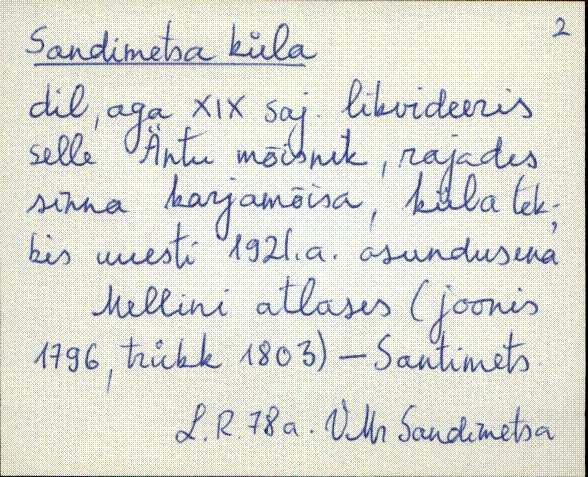 2
Sandimetsa küla
dil, aga XIX saj. likvideeris
selle Äntu mõisnik, rajades
sinna karjamõisa, küla tek-
kis uuesti 1921.a. asundusena
Mellini atlases (joonis
1796, trükk 1803) – Santimets.
L.R. 78a. VMr Sandimetsa